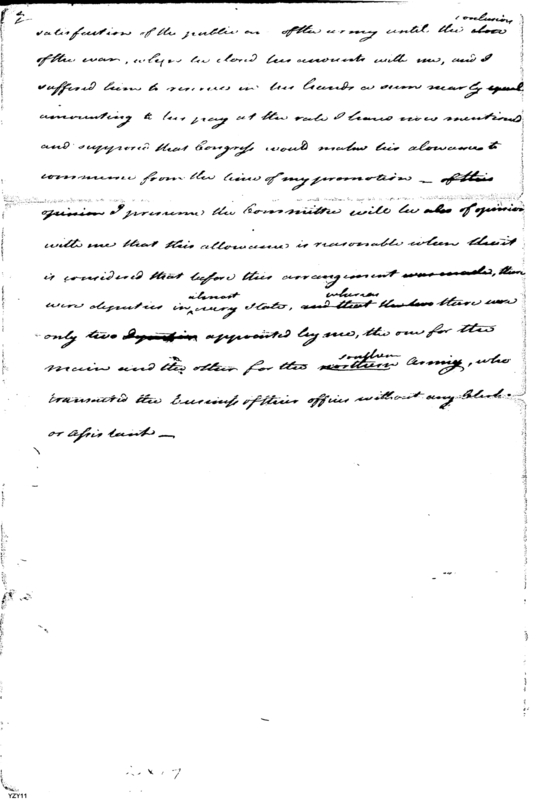 2
conclusion
satisfaction of the public and of the army until the close
of the war, when he closed his accounts with me, and I
suffered him to receive in his hands a sum nearly equal
amounting to his pay at the rate I have now mentioned
and supposed that Congress would make his allowance to
commence from the time of my promotion — of this
opinion I presume the Committee will be also of opinion
with me that this allowance is reasonable when
is considered that before this arrangement was made, there
almost whereas
were deputies in every State, and that there were
only two appointed by me, the one for the
southern
main and the other for the northern Army, who
transacted the business of their offices without any Clerk
or assistant —
YZY11